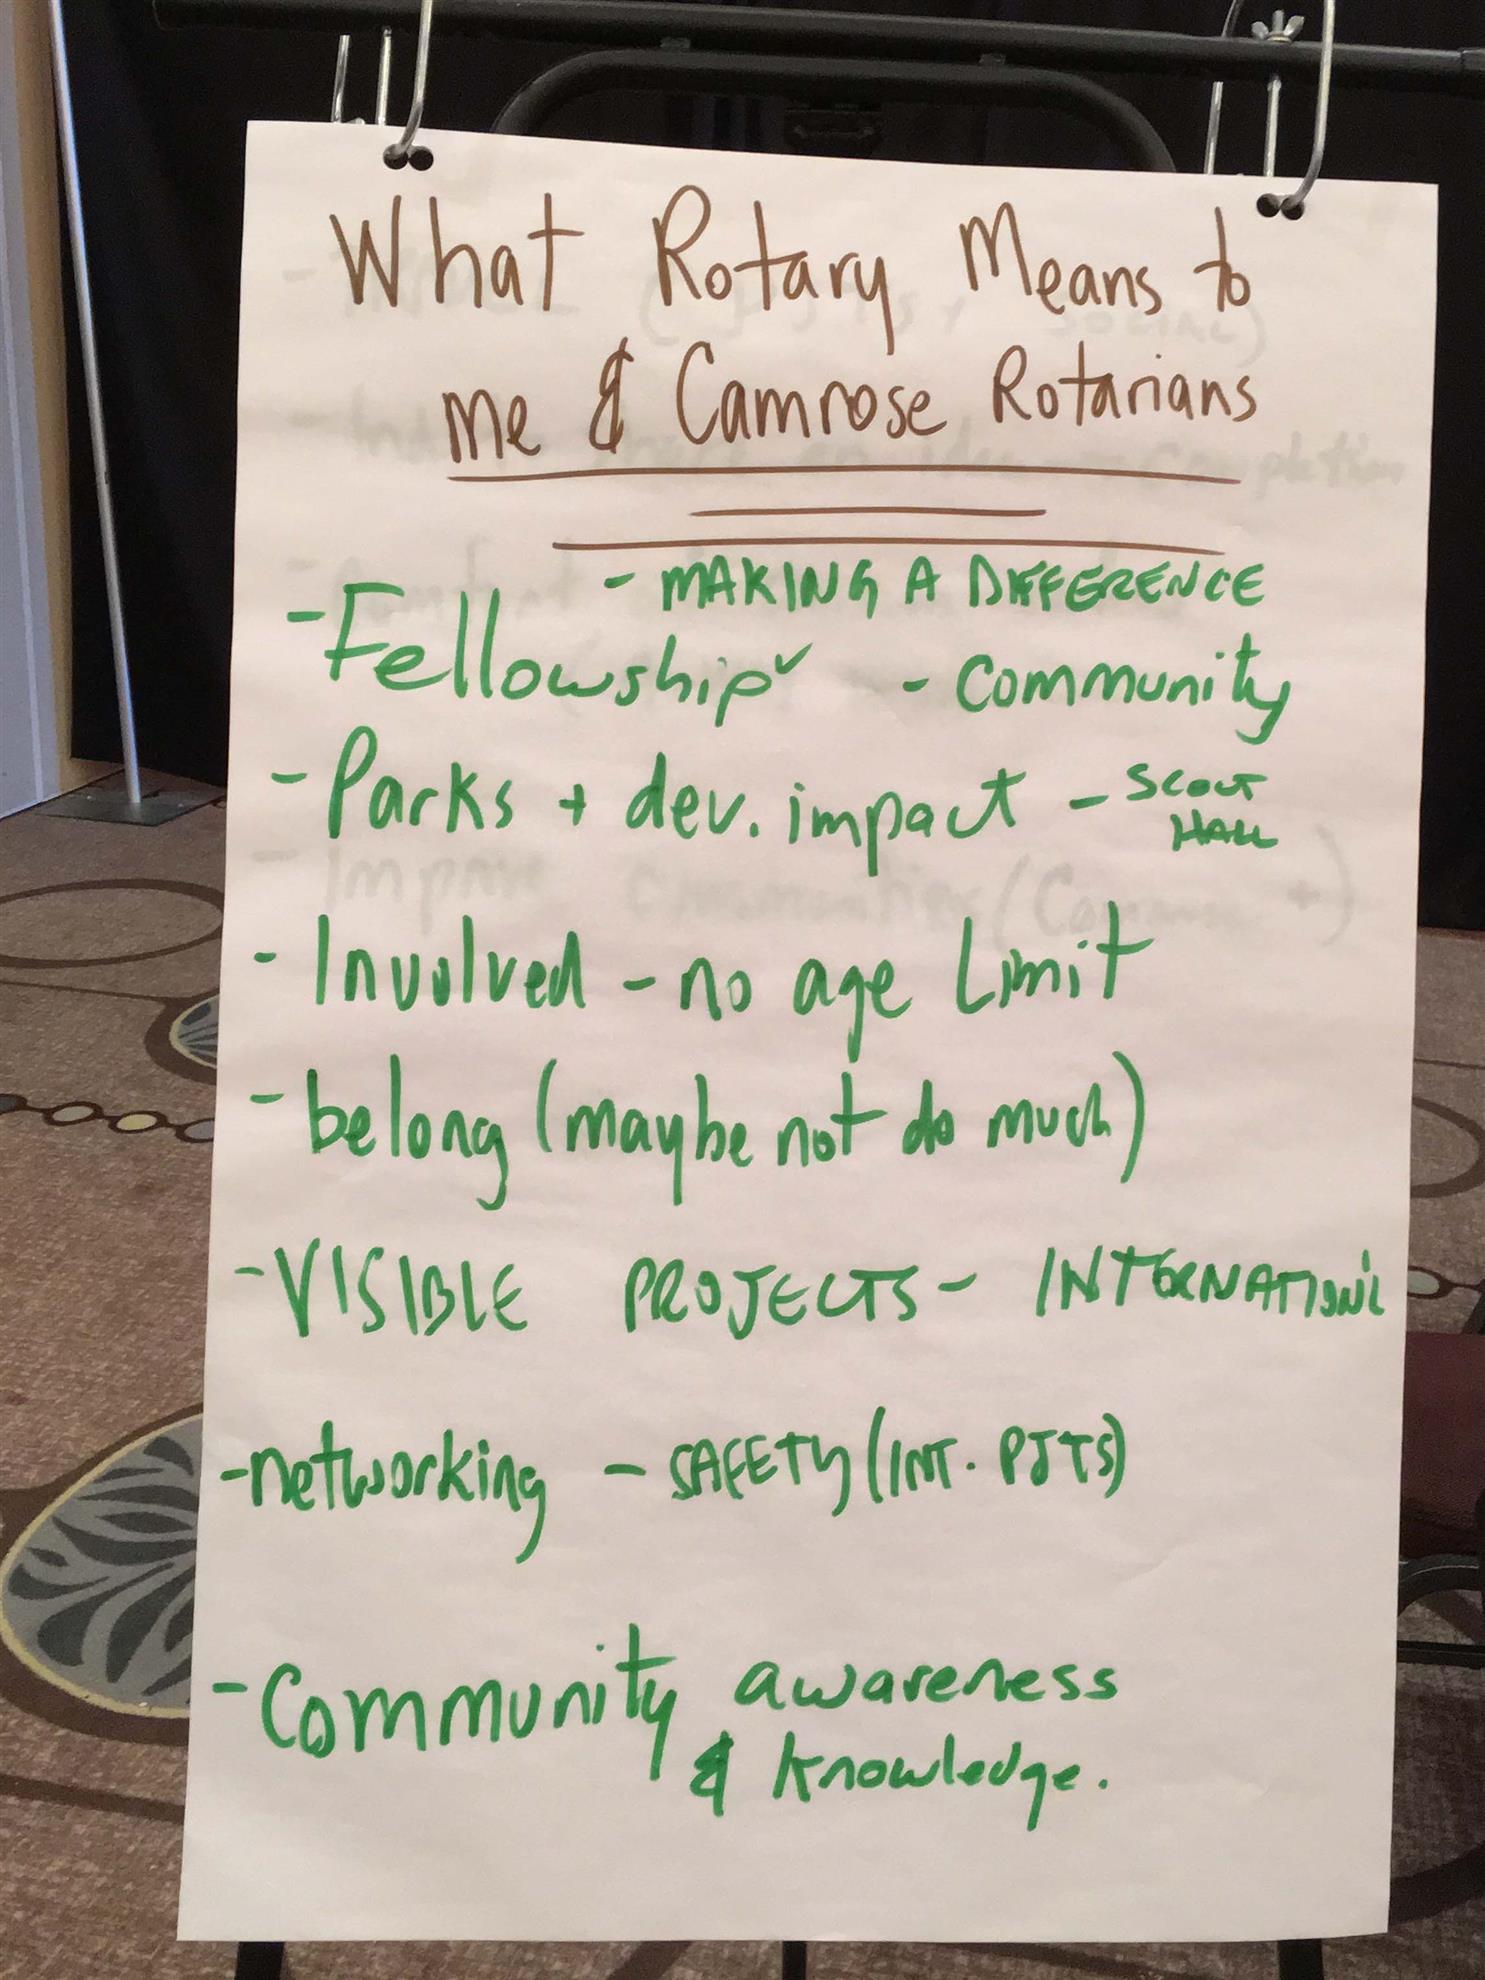 What Rotary Means to
me & Camrose Rotarians
- MAKING A DIFFERENCE
- Fellowship ✓ - Community
- Parks + dev. impact - SCOUT
HALL
- Involved - no age Limit
- belong (maybe not do much)
- VISIBLE PROJECTS - INTERNATION'L
- networking - SAFETY (INT. PJTS)
- Community awareness
& knowledge.